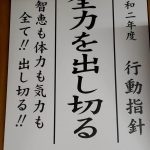 和二年度 行動指針
全力を出し切る
智恵も体力も気力も
全て!!出し切る!!